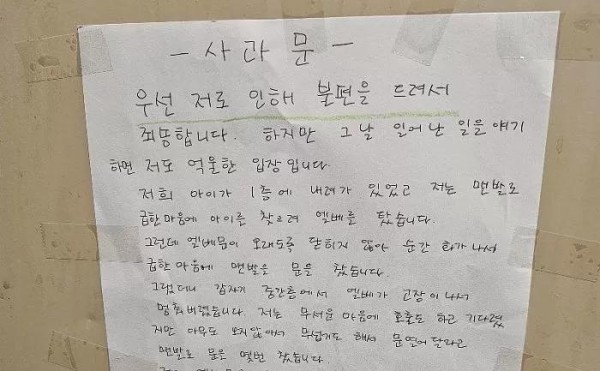 - 사 과 문 -
우선 저로 인해 불편을 드려서
죄송합니다. 하지만 그날 일어난 일을 얘기
하면 저도 억울한 입장입니다
저희 아이가 1층에 내려가 있었고 저는 맨발로
급한마음에 아이를 찾으려 엘베를 탔습니다.
그런데 엘베문이 오래도록 닫히지 않아 순간 화가나서
급한마음에 맨발로 문을 찼습니다.
그랬더니 갑자기 중간층에서 엘베가 고장이나서
멈춰버렸습니다. 저는 무서운 마음에 호출도 하고 기다렸
지만 아무도 오지않아서 무섭기도 해서 문열어달라고
맨발로 문을 몇번 찼습니다.